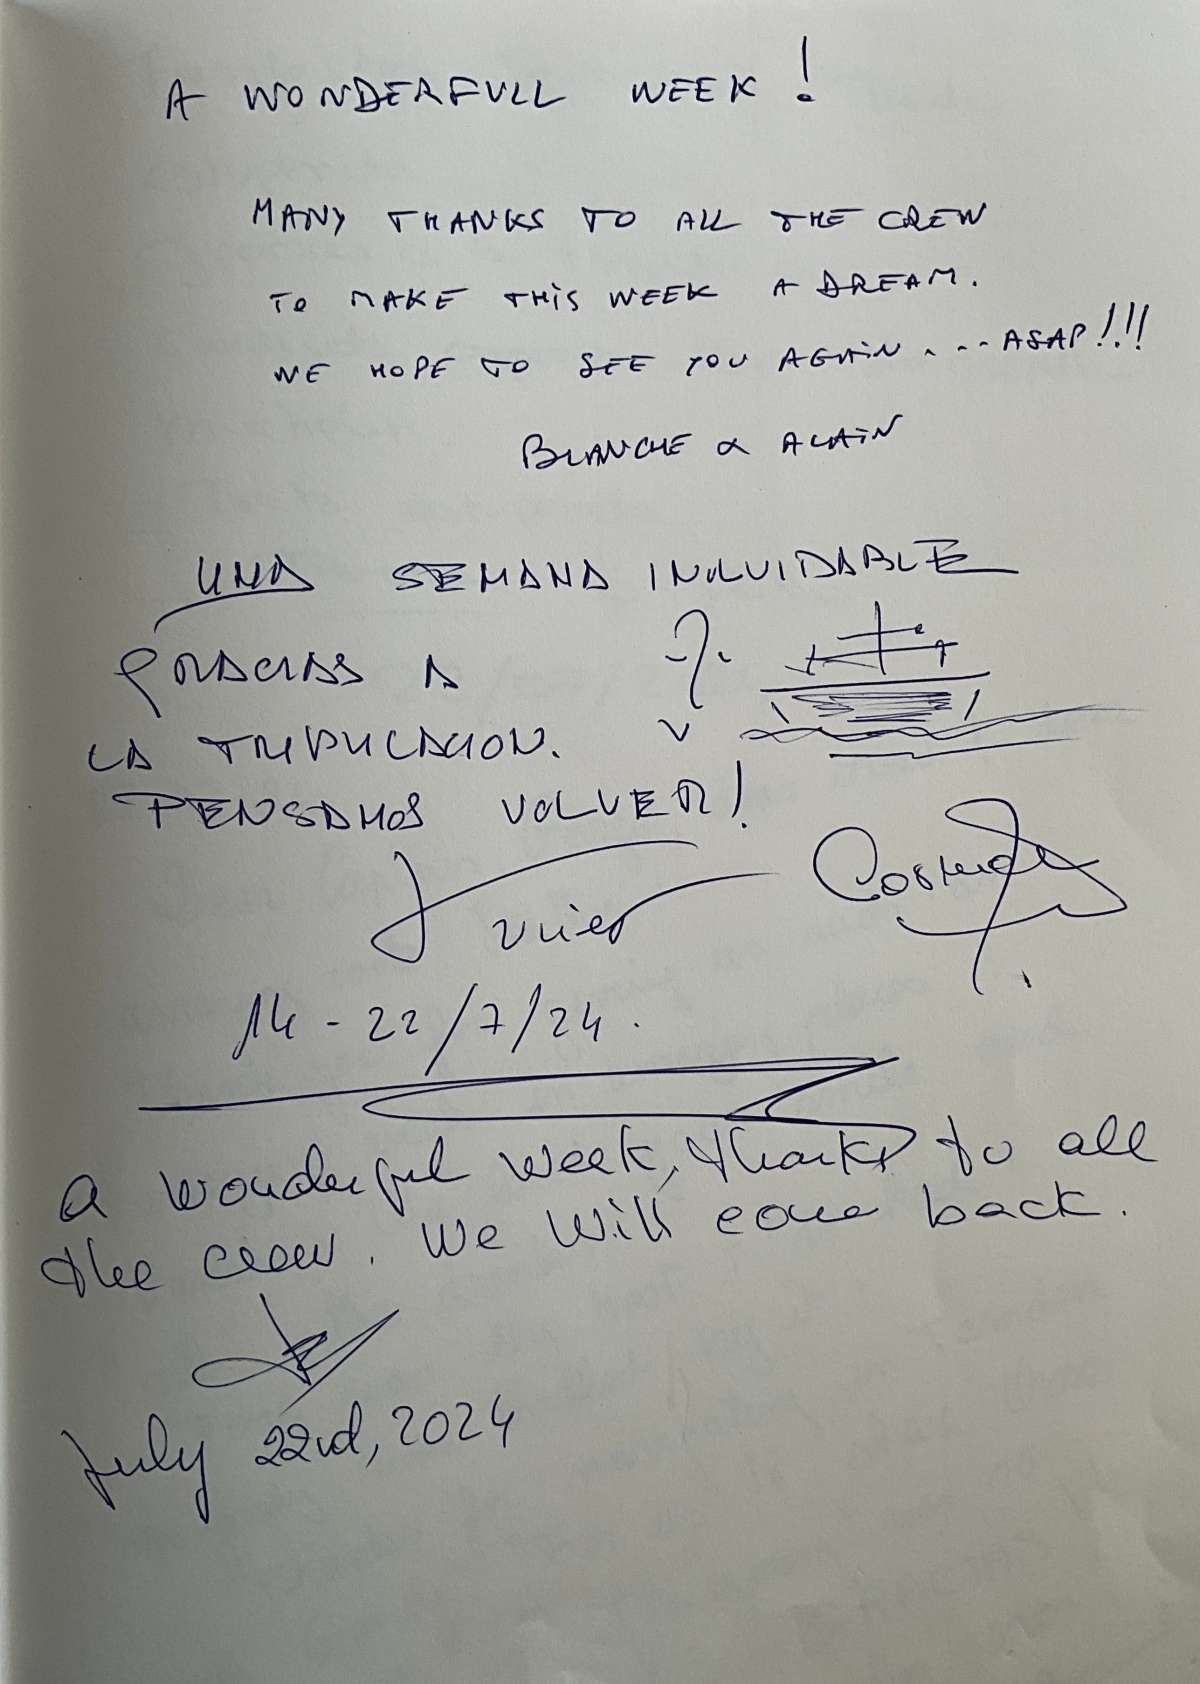 A WONDERFULL WEEK!
MANY THANKS TO ALL THE CREW
TO MAKE THIS WEEK A DREAM.
WE HOPE TO SEE YOU AGAIN....ASAP!!!
BLANCHE & ALAIN
UNA SEMANA INOLVIDABLE
GRACIAS A
LA TRIPULACION.
PENSAMOS VOLVER!
14-22/7/24.
A wonderful week, thanks to all
the crew. We will come back.
July 22nd, 2024